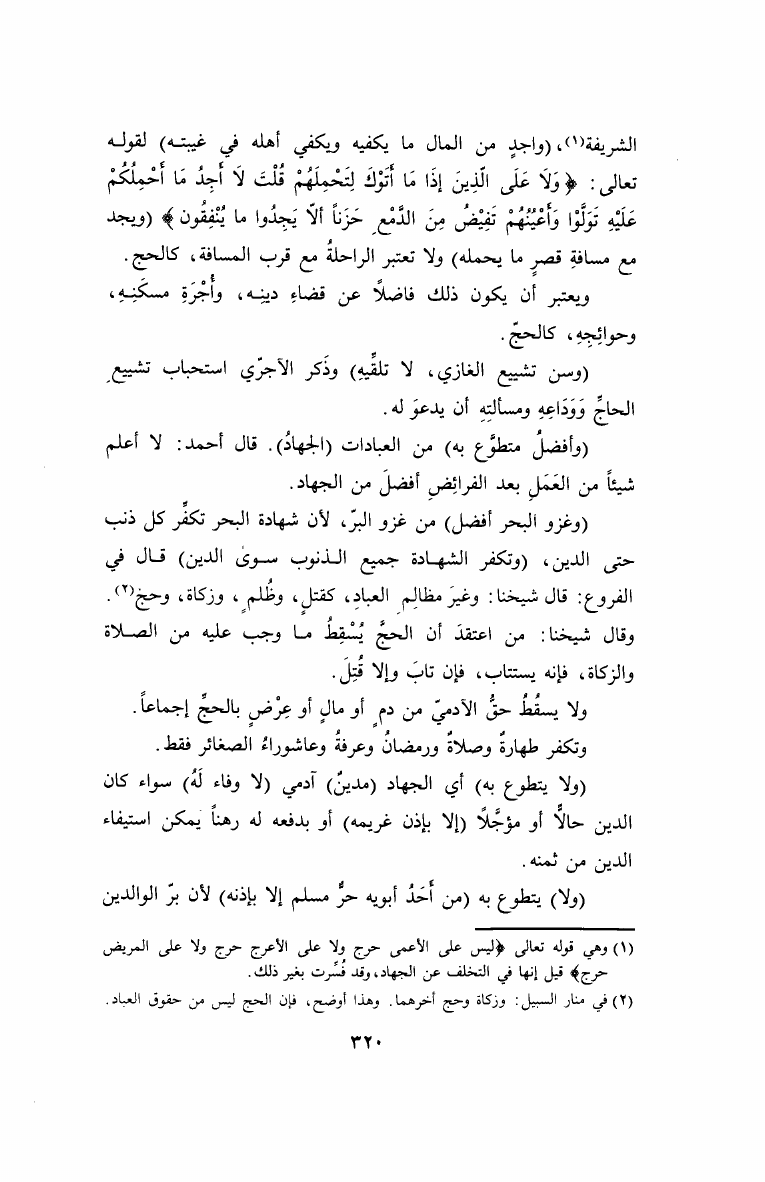 الشريفة(١)، (واجدٍ من المال ما يكفيه ويكفي أهله في غيبته) لقوله
تعالى: ﴿وَلَا عَلَى الَّذِينَ إِذَا مَا أَتَوْكَ لِتَحْمِلَهُمْ قُلْتَ لَا أَجِدُ مَا أَحْمِلُكُمْ
عَلَيْهِ تَوَلَّوْا وَأَعْيُنُهُمْ تَفِيْضُ مِنَ الدَّمْعِ حَزَناً ألاّ يَجِدُوا ما يُنْفِقُون﴾ (ويجد
مع مسافةِ قصرٍ ما يحمله) ولا تعتبر الراحلةُ مع قرب المسافة، كالحج.
ويعتبر أن يكون ذلك فاضلاً عن قضاءِ دينِه، وأُجْرَةِ مسكَنِهِ،
وحوائِجِهِ، كالحجّ.
(وسن تشييع الغازي، لا تلقِّيهِ) وذَكر الآجرّي استحباب تشييعِ
الحاجِّ وَوَدَاعِهِ ومسألتِهِ أن يدعوَ له.
(وأفضلُ متطوَّع به) من العبادات (الجهادُ). قال أحمد: لا أعلم
شيئاً من العَمَلِ بعد الفرائِضِ أفضلَ من الجهاد.
(وغزو البحر أفضل) من غزو البرّ، لأن شهادة البحر تكفِّر كل ذنب
حتى الدين، (وتكفر الشهادة جميع الذنوب سوىٰ الدين) قال في
الفروع: قال شيخنا: وغيرَ مظالِمِ العبادِ، كقتلٍ، وظُلمٍ، وزكاة، وحج(٢).
وقال شيخنا: من اعتقدَ أن الحجَّ يُسْقِطُ ما وجب عليه من الصلاة
والزكاة، فإنه يستتاب، فإن تابَ وإلا قُتِلَ.
ولا يسقُطُ حقُّ الآدميّ من دمٍ أو مالٍ أو عِرْضٍ بالحجِّ إجماعاً.
وتكفر طهارةٌ وصلاةٌ ورمضانُ وعرفةُ وعاشوراءُ الصغائر فقط.
(ولا يتطوع به) أي الجهاد (مدينٌ) آدمي (لا وفاء لَهُ) سواء كان
الدين حالًّا أو مؤجَّلًا (إلا بإذن غريمه) أو بدفعه له رهناً يمكن استيفاء
الدين من ثمنه.
(ولا) يتطوع به (من أَحَدُ أبويه حرٌّ مسلم إلا بإذنه) لأن برّ الوالدين
(١) وهي قوله تعالى ﴿ليس على الأعمى حرج ولا على الأعرج حرج ولا على المريض
حرج﴾ قيل إنها في التخلف عن الجهاد، وقد فُسِّرت بغير ذلك.
(٢) في منار السبيل: وزكاة وحج أخرهما. وهذا أوضح، فإن الحج ليس من حقوق العباد.
٣٢٠